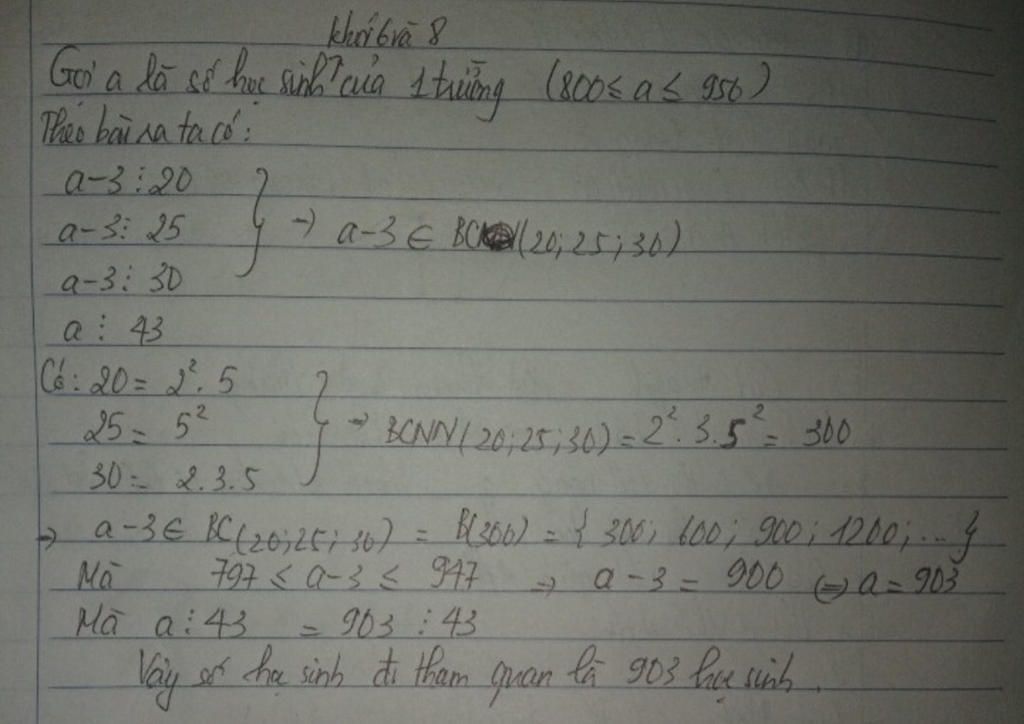 khối 6 và 8
Gọi a là số học sinh của 1 trường (800 ≤ a ≤ 950)
Theo bài ra ta có:
a-3 ⋮ 20
a-3 ⋮ 25
} → a-3 ∈ BC (20; 25; 30)
a-3 ⋮ 30
a ⋮ 43
Có: 20 = 2². 5
25 = 5²
} → BCNN(20; 25; 30) = 2². 3. 5² = 300
30 = 2.3.5
→ a-3 ∈ BC(20; 25; 30) = B(300) = { 300; 600; 900; 1200; ... }
Mà 797 ≤ a-3 ≤ 947 → a-3 = 900 (=) a = 903
Mà a ⋮ 43 = 903 ⋮ 43
Vậy số học sinh đi tham quan là 903 học sinh.